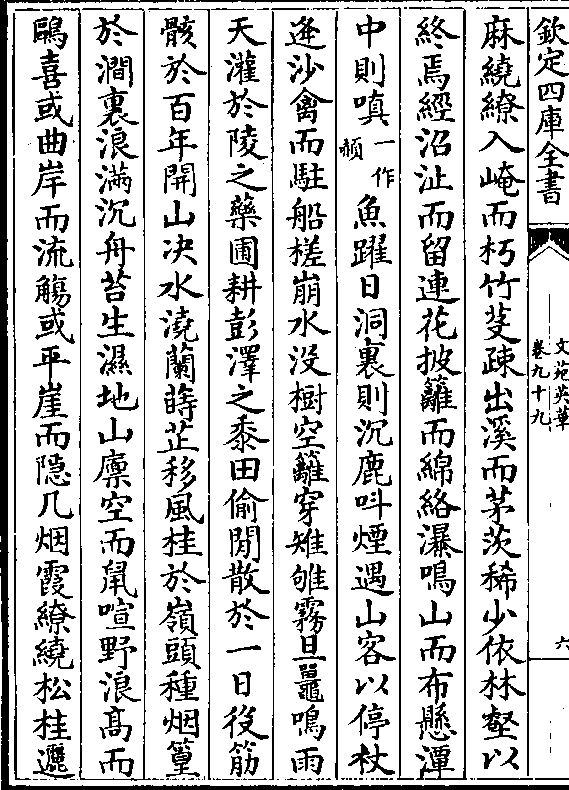 欽定四庫全書
文苑英華
卷九十九
六
麻繞繚入崦而朽竹芟疎出溪而茅茨稀少依林壑以
終焉經沼沚而留連花披籬而綿絡瀑鳴山而布懸潭
中則嗔一作頳魚躍日洞裏則沉鹿呌煙遇山客以停杖
逢沙禽而駐船槎崩水没樹空籬穿雉雊霧旦鼍鳴雨
天灌於陵之藥圃耕彭澤之黍田偷閒散於一日役筋
骸於百年開山决水澆蘭蒔芷移風桂於嶺頭種烟篁
於澗裏浪滿沉舟苔生濕地山廪空而鼠喧野浪髙而
鷗喜或曲岸而流觴或平崖而隠几烟霞繚繞松桂邐